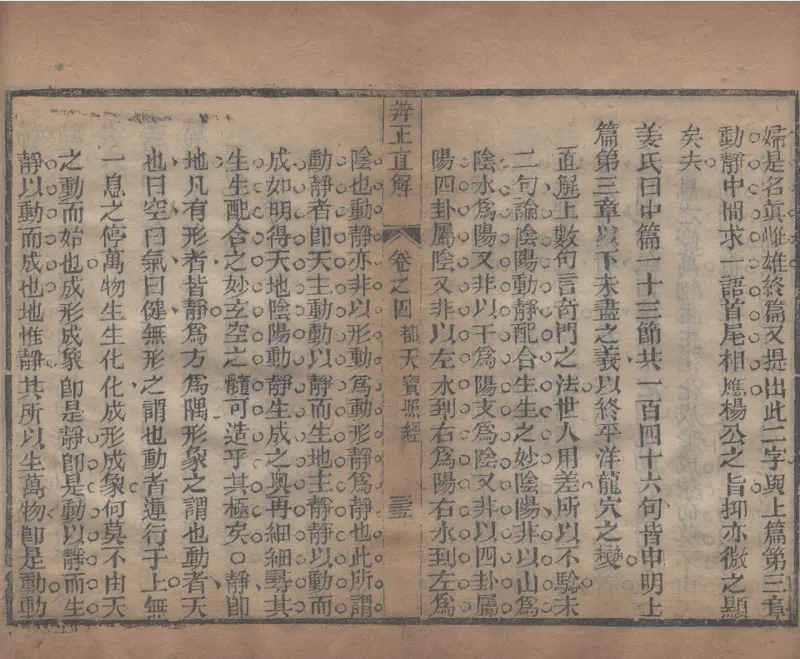 婦是名眞雌雄終篇又提出此二字與上篇第三章
動靜中間求一語首尾相應楊公之旨抑亦微之顯
矣夫
姜氏曰中篇一十三節共一百四十六句皆申明上
篇第三章以下未盡之義以終平洋龍穴之變
直解上數句言奇門之法世人用差所以不驗末
二句論陰陽動靜配合生生之妙陰陽非以山爲
陰水爲陽又非以干爲陽支爲陰又非以四卦屬
陽四卦屬陰又非以左水到右爲陽右水到左爲
辨正直解 卷之四 都天寶照經 三五
陰也動靜亦非以形動爲動形靜爲靜也此所謂
動靜者卽天主動動以靜而生地主靜靜以動而
成如明得天地陰陽動靜生成之奧再細細尋其
生生配合之妙玄空之髓可造乎其極矣○靜卽
地凡有形者皆靜爲方爲隅形象之謂也動者天
也曰空曰氣曰健無形之謂也動者運行于上無
一息之停萬物生生化化成形成象何莫不由天
之動而始也成形成象卽是靜卽是動以靜而生
靜以動而成也地惟靜其所以生萬物卽是動動